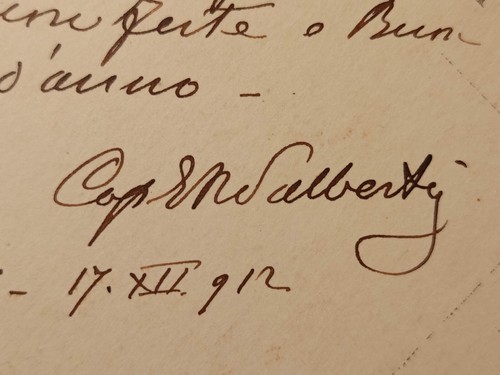 feste e Buon
d'anno –
Cap E A d'Albertis
– 17. XII. 912